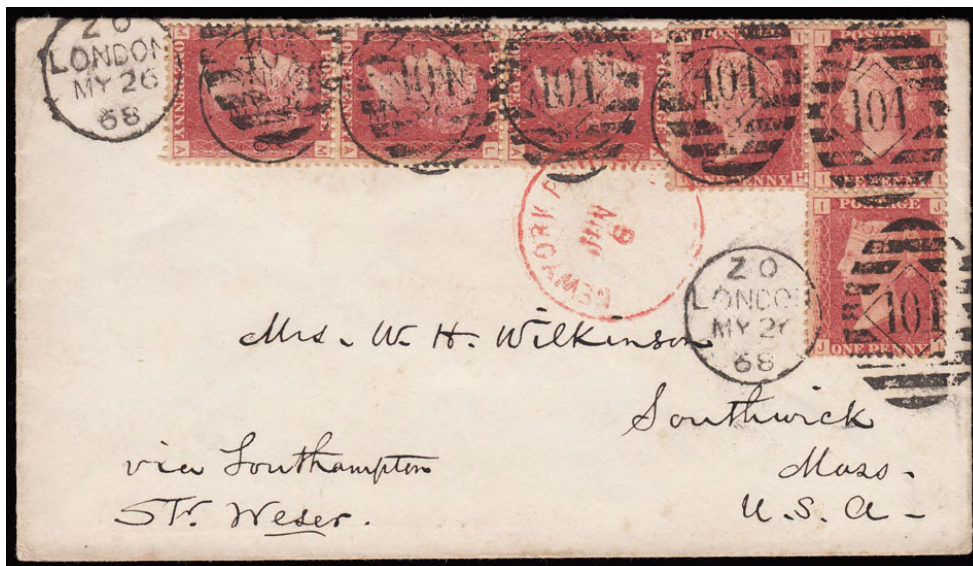 Z O
LONDON
MY 26
68
101
101
101
101
PENNY H
I POSTAGE I
101
I I
I POSTAGE J
101
J ONE PENNY I
NEW YORK
Z O
LONDON
MY 26
68
Mrs. W. H. Wilkinson
Southwick
Mass.
U.S.A-
via Southampton
STr. Weser.